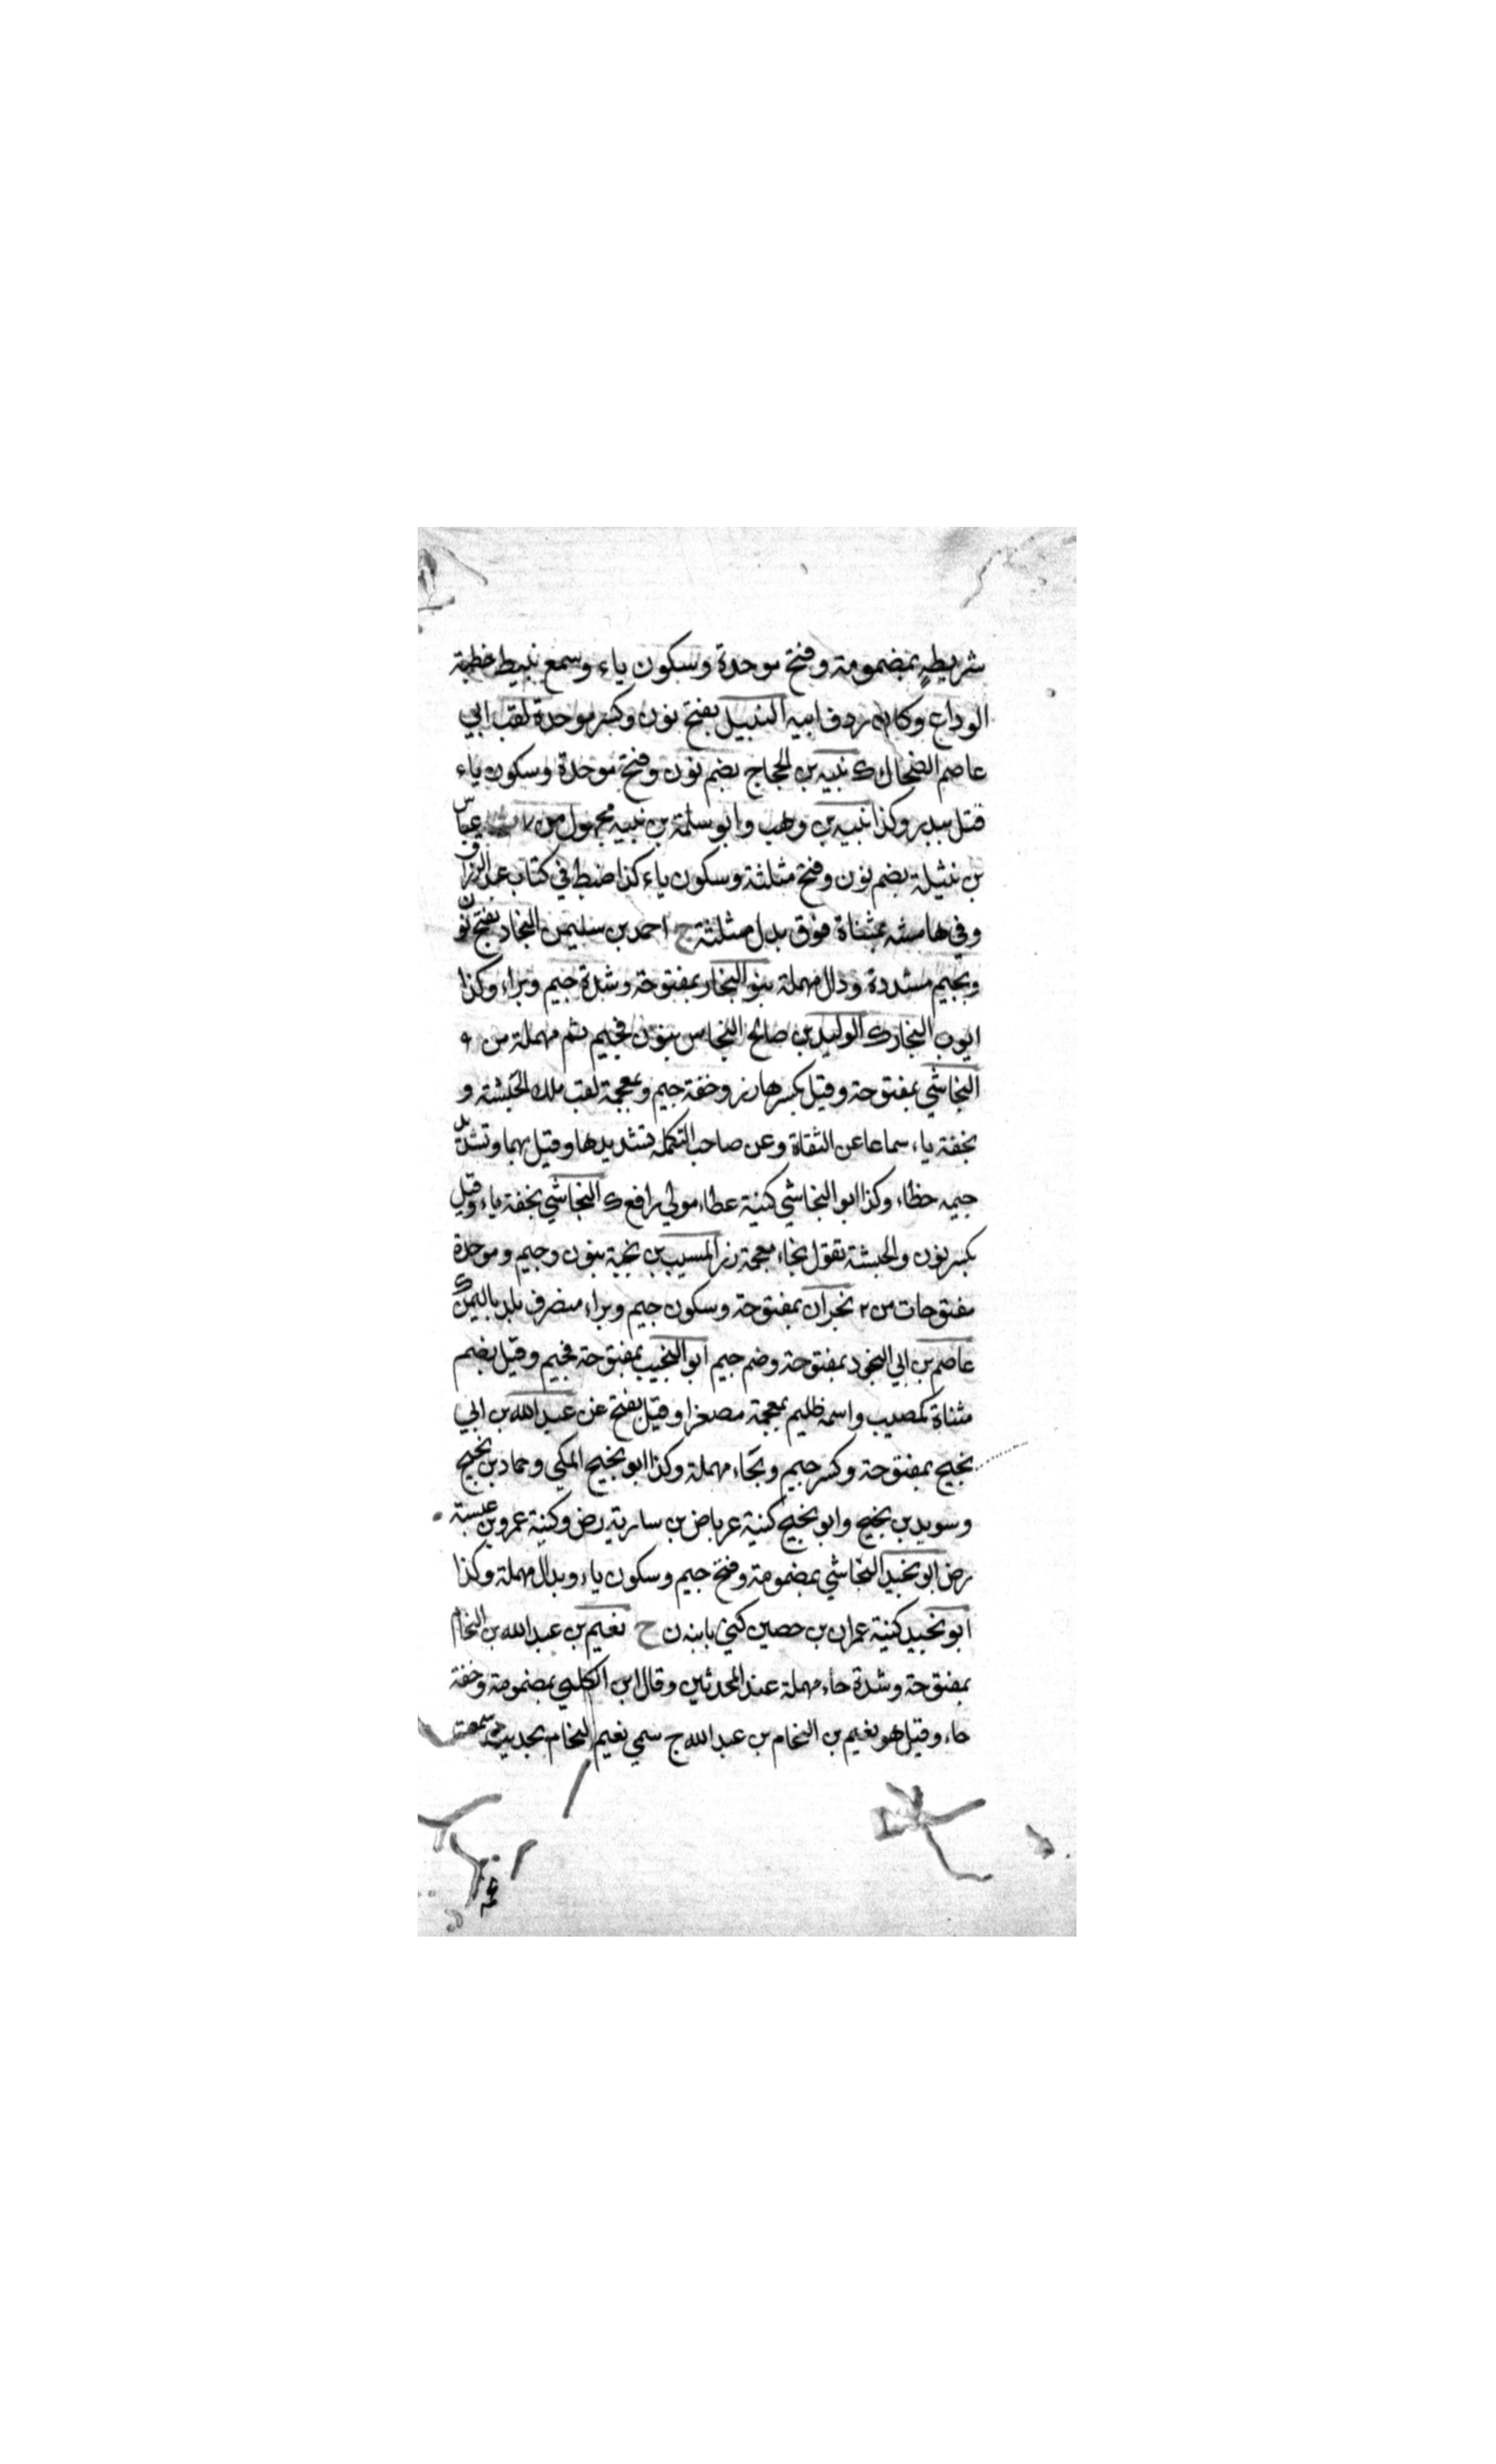 شريطه بمضمومة وفتح موحدة وسكون ياء وسمع نبيط خطبة
الوداع وكان ردف ابيه النبيل بفتح نون وكسر موحدة لقب ابي
عاصم الضحاك ك نبيه بن الحجاج بضم نون وفتح موحدة وسكون ياء
قتل ببدر وكذا نبيه بن وهب وابو سلمة بن نبيه مجهول من عباس
بن نثيلة بضم نون وفتح مثلثة وسكون ياء كذا ضبط في كتاب عبد الرزاق
وفي هامشه بمثناة فوق بدل مثلثة ج احمد بن سليمن النجاد بفتح نون
وبجيم مشددة ودال مهملة بنو النجار بمفتوحة وشدة جيم وبراء وكذا
ايوب النجار ك الوليد بن صالح النجاس بنون فجيم ثم مهملة من ٩
النجاشي بمفتوحة وقيل بكسرها رز وخفة جيم وبمعجمة لقب ملك الحبشة و
بخفة ياء سماعا عن الثقاة وعن صاحب التكملة تشديدها وقيل بهما وتشديد
جيمه خطاء وكذا ابو النجاشي كنية عطاء مولى رافع ك النجاشي بخفة ياء وقيل
بكسر نون والحبشة تقول بخاء معجمة رز المسيب بن نجبة بنون وجيم وموحدة
مفتوحات من ٢ نجران بمفتوحة وسكون جيم وبراء منصرف بلد باليمن ك
عاصم بن ابي النجود بمفتوحة وضم جيم ابو النجيب بمفتوحة فجيم وقيل بضم
مثناة كمصيب واسمه ظليم بمعجمة مصغرا وقيل بفتح عن عبد الله بن ابي
نجيح بمفتوحة وكسر جيم وبحاء مهملة وكذا ابو نجيح المكي وحماد بن نجيح
وسويد بن نجيح وابو نجيح كنية عرباض بن سارية رض وكنية عمرو بن عبسة
رض ابو نجيد النجاشي بمضمومة وفتح جيم وسكون ياء وبدال مهملة وكذا
ابو نجيد كنية عمران بن حصين كني بابنه ن ح نعيم بن عبد الله بن النحام
بمفتوحة وشدة حاء مهملة عند المحدثين وقال ابن الكلبي بمضمومة وخفة
حاء وقيل هو نعيم بن النحام بن عبد الله ج سمي نعيم النحام بحديث سمعت